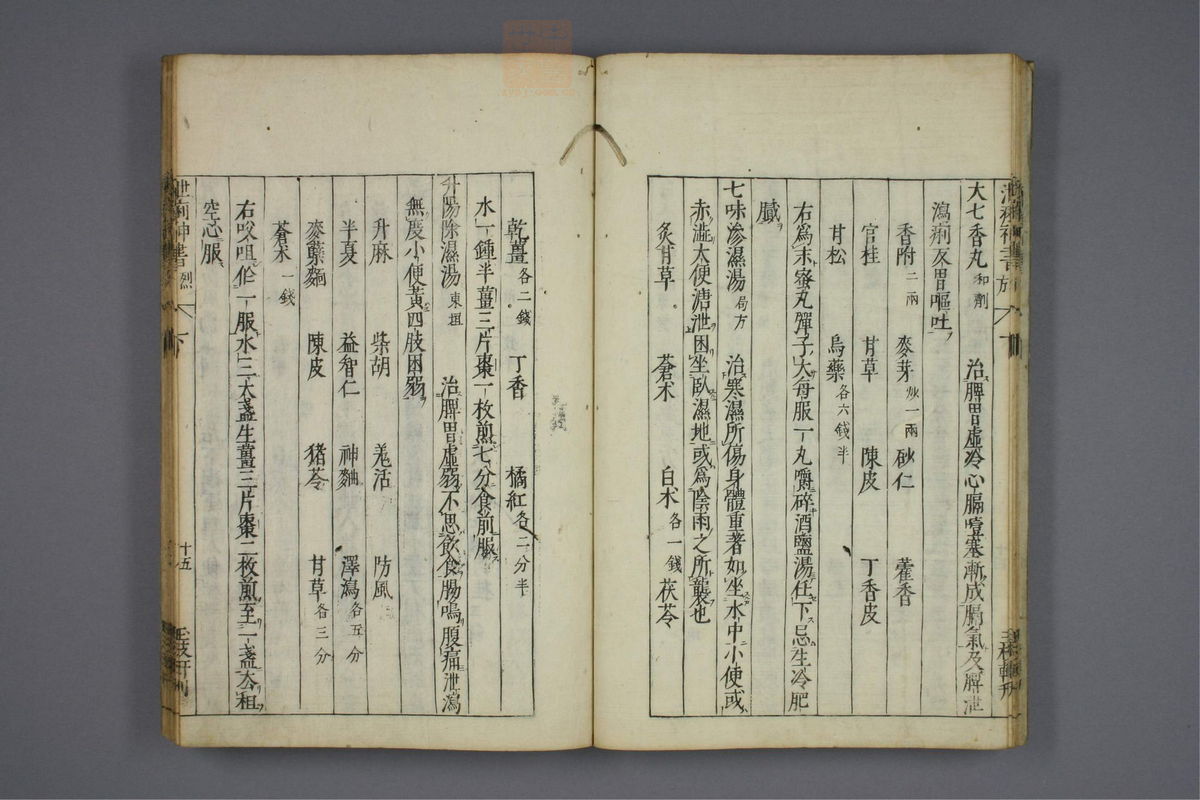 大七香丸和劑 治脾胃虛冷心膈噎塞漸成膈氣及脾泄
瀉痢反胃嘔吐
香附二兩 麥芽炒一兩 砂仁 藿香
官桂 甘草 陳皮 丁香皮
甘松 烏藥各六錢半
右爲末蜜丸彈子大每服一丸嚼碎酒鹽湯任下忌生冷肥
膩
七味滲濕湯局方 治寒濕所傷身體重著如坐水中小便或
赤澁大便溏泄因坐臥濕地或爲陰雨之所襲也
炙甘草 蒼朮 白朮各一錢 茯苓
乾薑各二錢 丁香 橘紅各二分半
水一鍾半薑三片棗一枚煎七分食前服
升陽除濕湯東垣 治脾胃虛弱不思飲食腸鳴腹痛泄瀉
無度小便黃四肢困弱
升麻 柴胡 羗活 防風
半夏 益智仁 神麯 澤瀉各五分
麥蘖麵 陳皮 猪苓 甘草各三分
蒼朮一錢
右㕮咀作一服水三大盞生薑三片棗二枚煎至一盞去柤
空心服
世痢神書 烈 十五